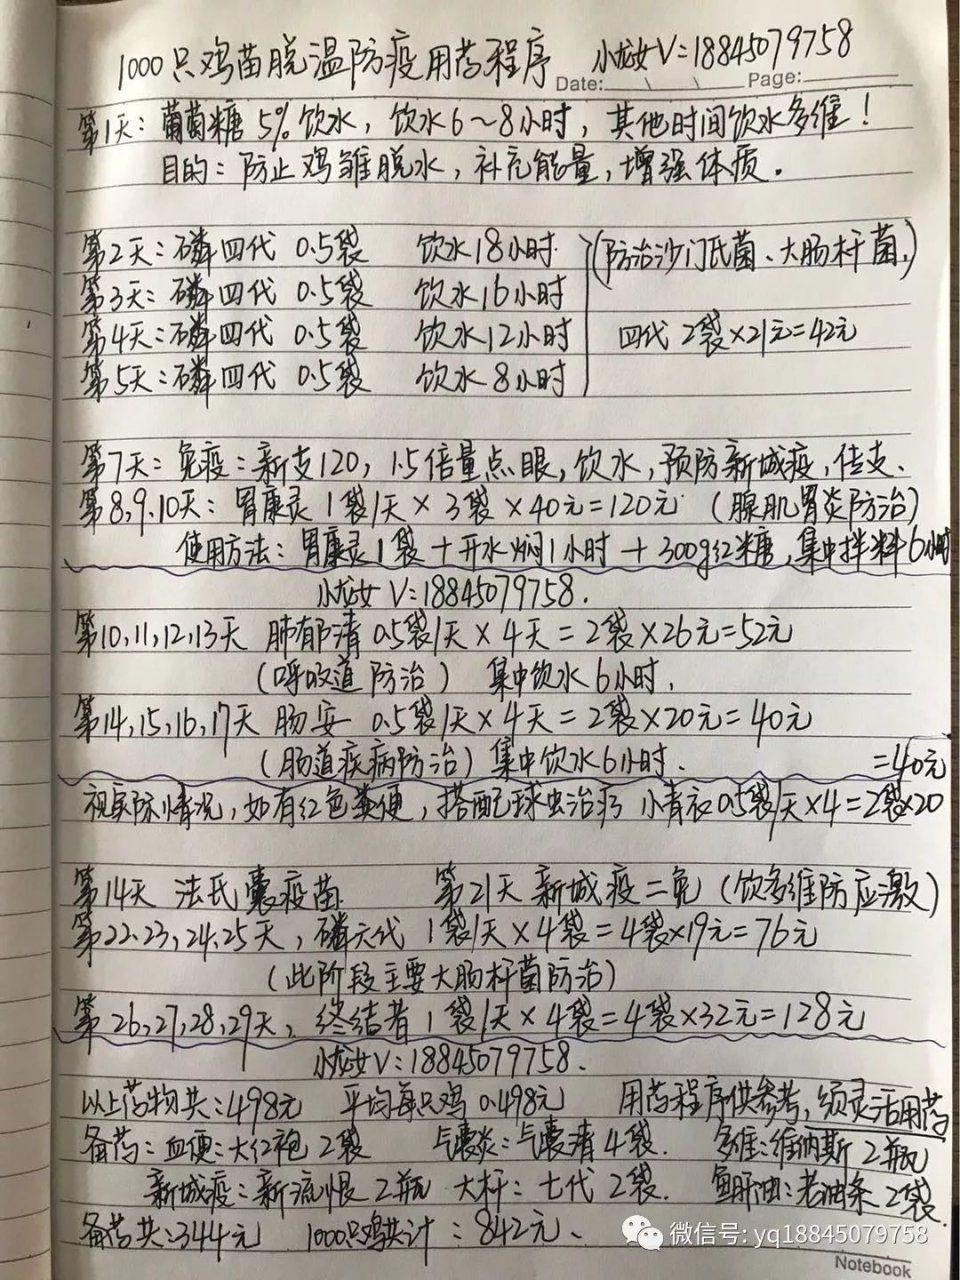 1000只鸡苗脱温防疫用药程序 小龙女V=18845079758
Date: \ \ Page:
第1天：葡萄糖5%饮水，饮水6～8小时，其他时间饮水多维！
目的：防止鸡雏脱水，补充能量，增强体质。
第2天：磷四代 0.5袋 饮水18小时 (防治沙门氏菌、大肠杆菌,)
第3天：磷四代 0.5袋 饮水16小时
第4天：磷四代 0.5袋 饮水12小时 四代 2袋×21元=42元
第5天：磷四代 0.5袋 饮水8小时
第7天：免疫：新支120，1.5倍量点眼，饮水，预防新城疫，传支、
第8,9.10天：胃康灵 1袋/天×3袋×40元=120元 (腺肌胃炎防治)
使用方法：胃康灵1袋+开水焖1小时+300g红糖,集中拌料6小时
小龙女V=18845079758.
第10,11,12,13天 肺郁清 0.5袋/天×4天=2袋×26元=52元
(呼吸道防治) 集中饮水6小时.
第14,15,16,17天 肠安 0.5袋/天×4天=2袋×20元=40元
(肠道疾病防治) 集中饮水6小时. =40元
视实际情况，如有红色粪便，搭配球虫治疗 小青衣0.5袋/天×4=2袋×20
第14天 法氏囊疫苗 第21天 新城疫二免 (饮多维防应激)
第22.23,24,25天，磷六代 1袋/天×4袋=4袋×19元=76元
(此阶段主要大肠杆菌防治)
第26,27,28,29天，终结者 1袋/天×4袋=4袋×32元=128元
小龙女V=18845079758.
以上药物共:498元 平均每只鸡0.498元 用药程序供参考,须灵活用药
备药：血便：大红袍2袋 气囊炎：气囊清4袋. 多维：维纳斯2瓶
新城疫：新流恨2瓶 大杆：七代2袋. 鱼肝油：老油条2袋.
备药共:344元 1000只鸡共计：842元、
微信号: yq18845079758
Notebook